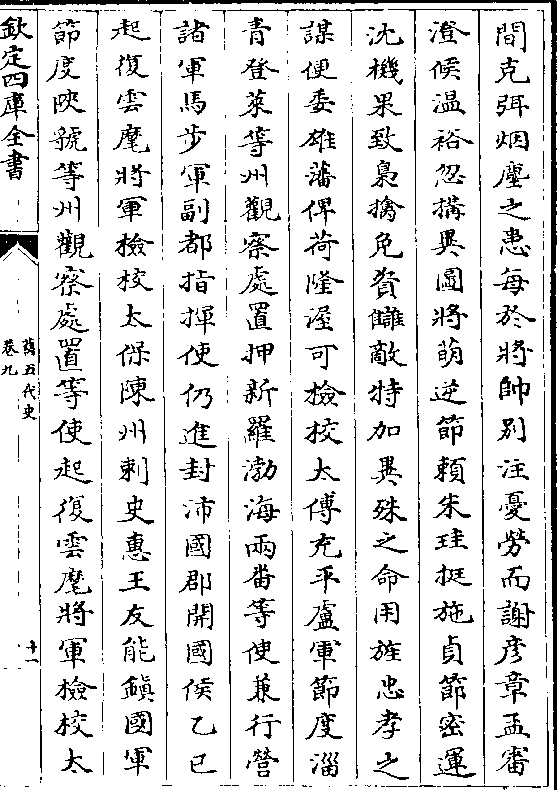 間克弭烟塵之患每於將帥別注憂勞而謝彥章孟審
澄侯溫裕忽搆異圖將萌逆節賴朱珪挺施貞節密運
沈機果致梟擒免資讎敵特加異殊之命用旌忠孝之
謀便委雄藩俾荷隆渥可檢校太傅充平盧軍節度淄
青登萊等州觀察處置押新羅渤海兩畨等使兼行營
諸軍馬步軍副都指揮使仍進封沛國郡開國侯乙巳
起復雲麾將軍檢校太保陳州刺史惠王友能鎮國軍
節度陜虢等州觀察處置等使起復雲麾將軍檢校太
欽定四庫全書
舊五代史
卷九
十一